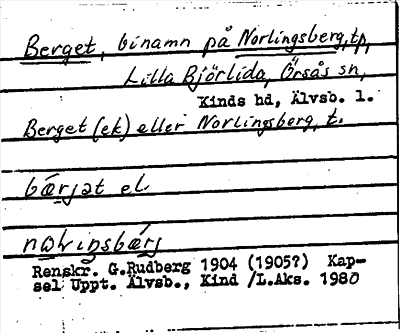 Berget, binamn på Norlingsberg, tp,
Lilla Björlida, Örsås sn,
Kinds hd, Älvsb. l.
Berget (ek) eller Norlingsberg, t.
bærjət el.
Renskr. G.Rudberg 1904 (1905?) Kap-
sel Uppt. Älvsb., Kind /L.Aks. 1980